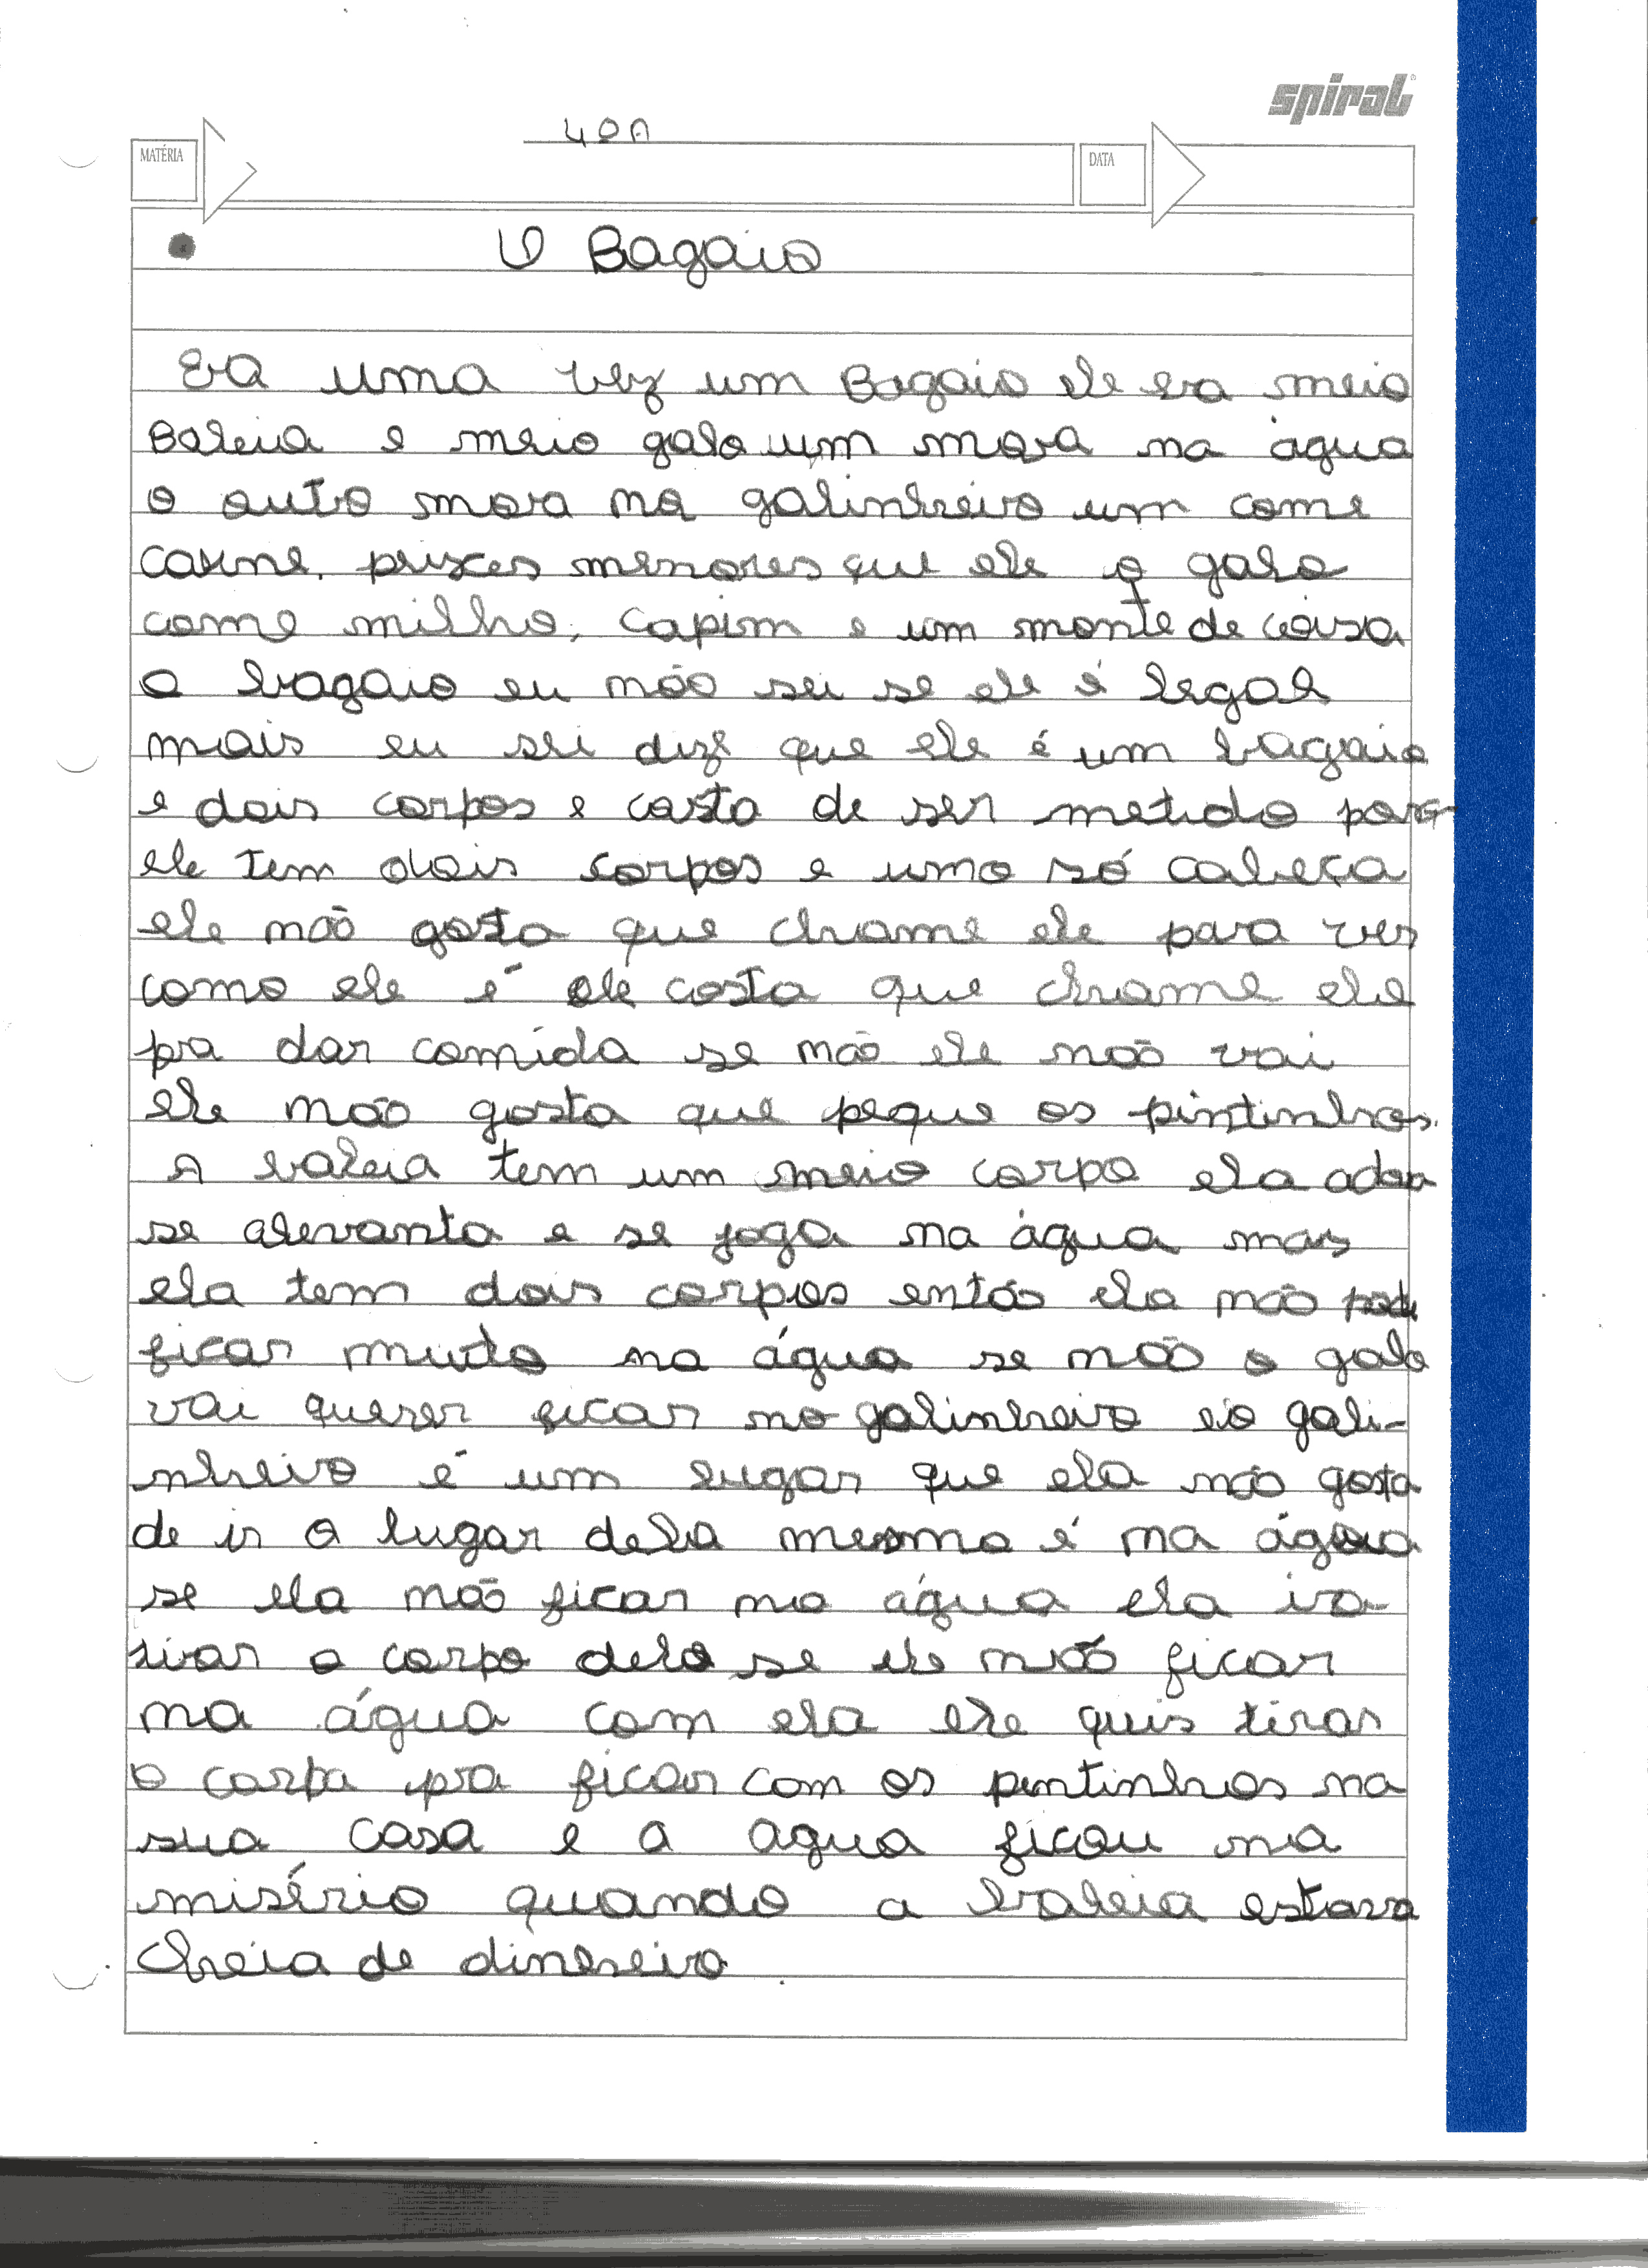 spiral
4ºA
MATÉRIA
DATA
O Bagaio
Era uma vez um Bagaio ele era meio
Baleia e meio galo um mora na água
o outro mora na galinheiro um come
carne, peixes menores que ele o galo
come milho, capim e um monte de coisa
o bagaio eu não sei se ele é legal
mais eu sei dize que ele é um bagaio
e dois corpos e costa de ser metido porq
ele tem dois corpos e uma só cabeça
ele não gosta que chame ele para ver
como ele é ele costa que chame ele
pra dar comida se não ele não vai
ele não gosta que peque os pintinhos.
A baleia tem um meio corpo ela adora
se alevanta e se joga na água mas
ela tem dois corpos então ela não pode
ficar muito na água se não o galo
vai querer ficar no galinheiro e o gali-
nheiro é um lugar que ela não gosta
de ir o lugar dela mesmo é na água
se ela não ficar na água ela ia
tirar o corpo dela se ele não ficar
na água com ela ele quis tirar
o corpa pra ficar com os pentinhos na
sua casa e a agua ficou na
misério quando a baleia estava
cheia de dinheiro